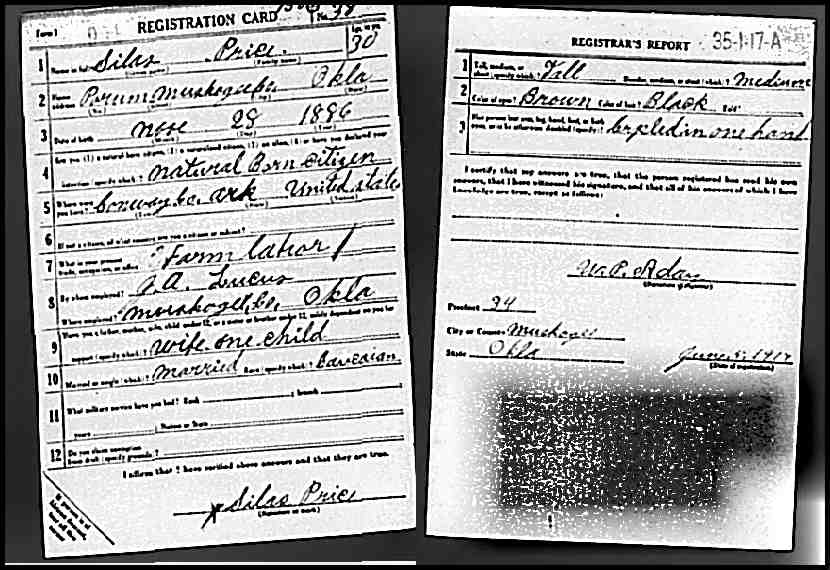 Form 1 REGISTRATION CARD No. 38
Age, in yrs.
1 Name in full Silas Price. 30
(Given name) (Family name)
2 Home address Porum, Muskogee Co. Okla
(No.) (State)
3 Date of birth Nove 28 1886
(Month) (Day) (Year)
Are you (1) a natural born citizen, (2) a naturalized citizen, (3) an alien, (4) or have you declared your
4 intention (specify which)? Natural Born citizen
5 Where were you born? Conway Co. Ark United State
(Town) (State) (Nation)
6 If not a citizen, of what country are you a citizen or subject?
7 What is your present trade, occupation, or office? Farm labor
8 By whom employed? J.A. Lucus
Where employed? Muskogee, Co, Okla
Have you a father, mother, wife, child under 12, or a sister or brother under 12, solely dependent on you for
9 support (specify which)? Wife one child
10 Married or single (which)? Married Race (specify which)?
11 What military service have you had? Rank ; branch ;
years ; Nation or State
12 Do you claim exemption from draft (specify grounds)?
I affirm that I have verified above answers and that they are true.
x Silas Price
(Signature or mark)
REGISTRAR'S REPORT 35-1-17-A
1 Tall, medium, or short (specify which)? Tall Slender, medium, or stout (which)?
2 Color of eyes? Brown Color of hair? Black Bald?
3 Has person lost arm, leg, hand, foot, or both eyes, or is he otherwise disabled (specify)? Crpled in one hand
I certify that my answers are true, that the person registered has read his own
answers, that I have witnessed his signature, and that all of his answers of which I have
knowledge are true, except as follows:
(Signature of registrar)
Precinct 24
City or County Muskogee
State Okla June 5, 1917
(Date of registration)